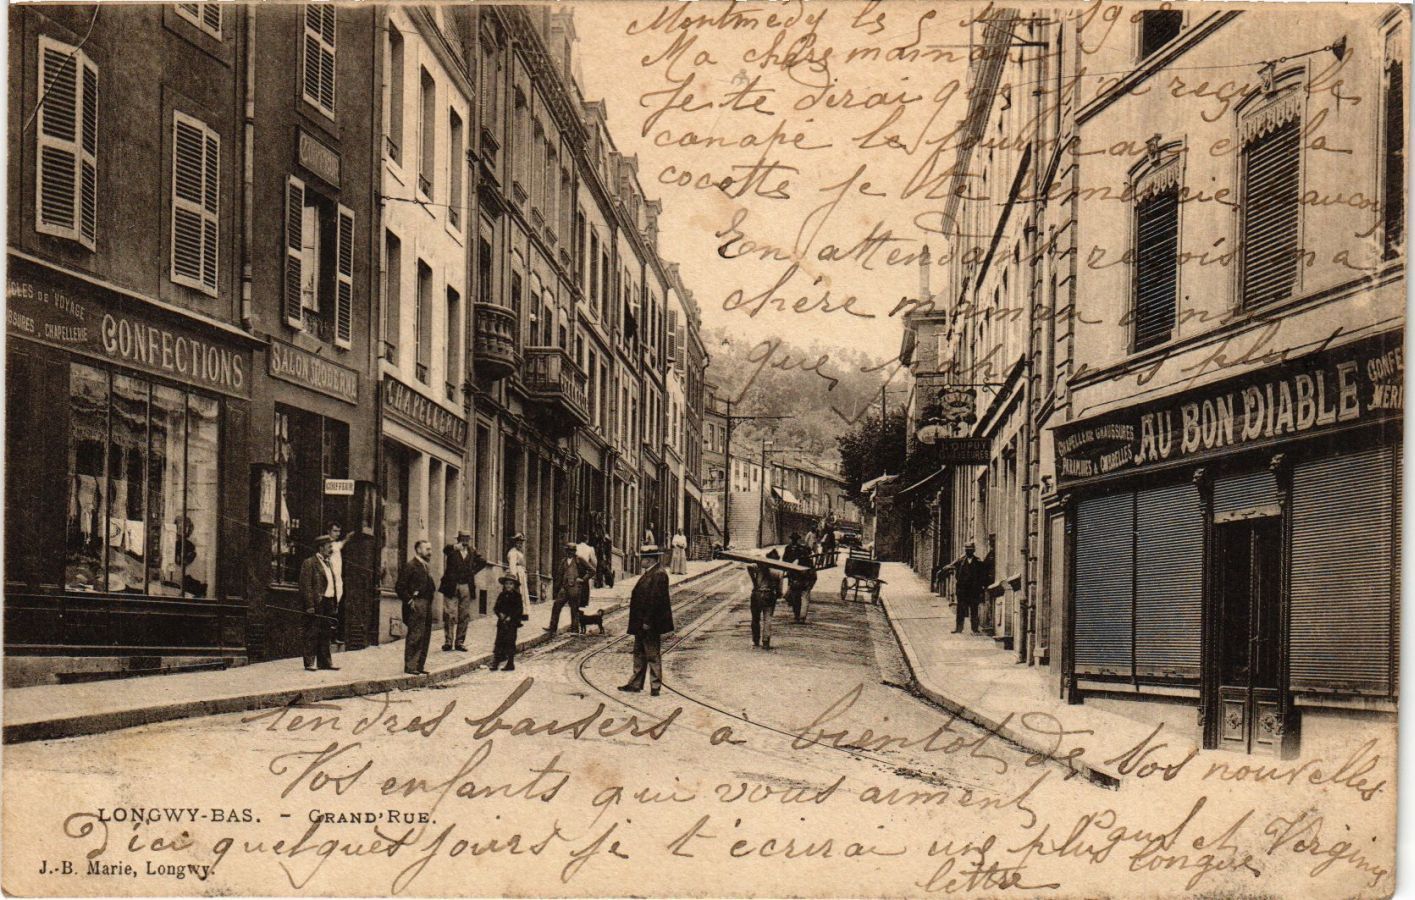 Montmédy le 5 Mai 190
Ma chère maman
Je te dirai que j'ai reçu le
canapé le fourneau e la
cocotte je te remercie
En attendant recois ma
chère maman ainsi
que papa nos plus
tendres baisers à bientot de Vos nouvelles
Vos enfants qui vous aiment
Paul et Virginie
D'ici quelques jours je t'écrirai une plus longue
lettre
LES DE VOYAGE
SSURES . CHAPELLERIE
CONFECTIONS
SALON MODERNE
COIFFEUR
CHAPELLERIE
CHAUSSURES
CHAPELLERIE CHAUSSURES
PARAPLUIES & OMBRELLES
AU BON DIABLE
CONFE
MER
LONGWY-BAS. - GRAND'RUE.
J.-B. Marie, Longwy.